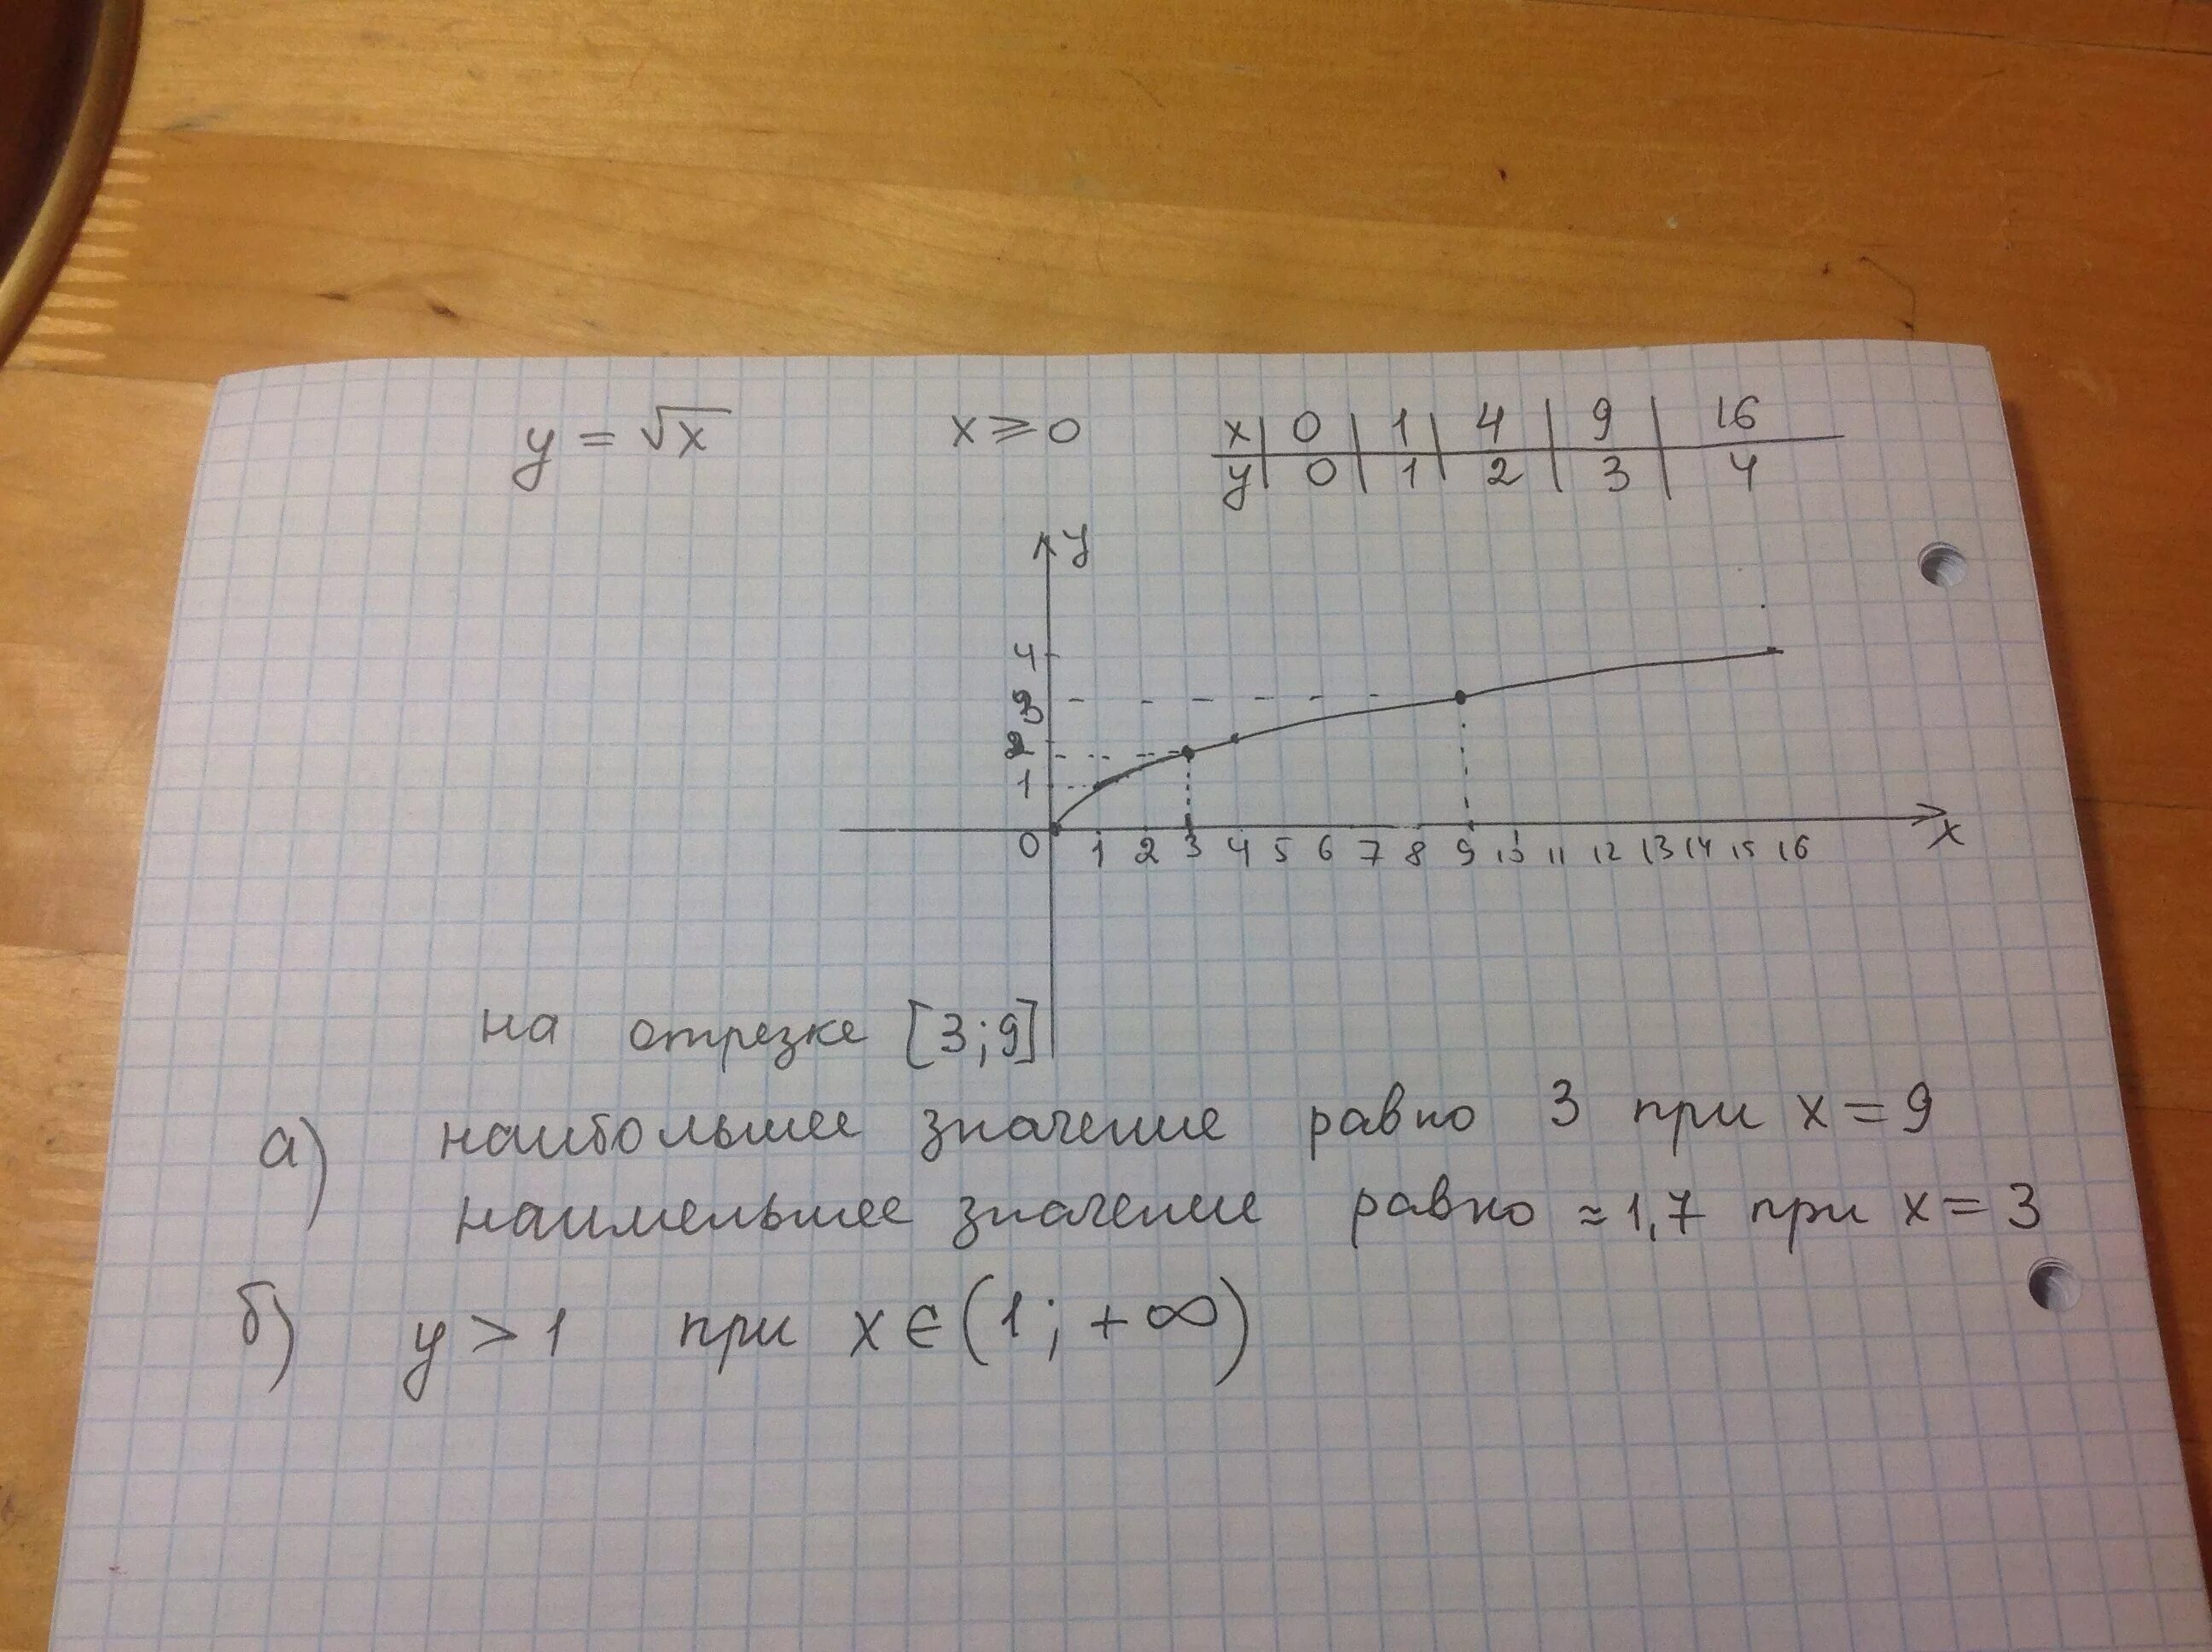 y = √x x ⩾ 0
x | 0 | 1 | 4 | 9 | 16
y | 0 | 1 | 2 | 3 | 4
y
4
3
2
1
0 1 2 3 4 5 6 7 8 9 10 11 12 13 14 15 16 x
на отрезке [3;9]
а) наибольшее значение равно 3 при x = 9
наименьшее значение равно ≈ 1,7 при x = 3
б) y > 1 при x ∈ (1; +∞)